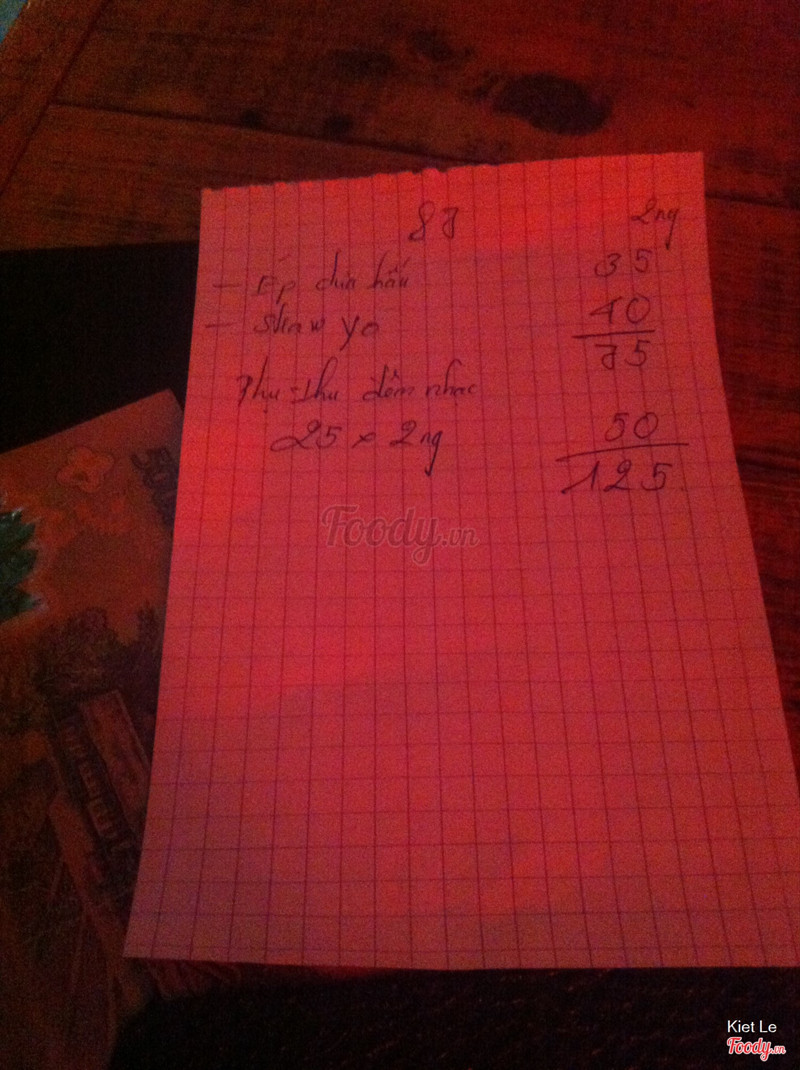 87 2ng
- Ép dưa hấu 35
- Straw yo 40
75
Phụ thu đêm nhạc
25 x 2ng 50
125
Foody.vn
Kiet Le
Foody.vn